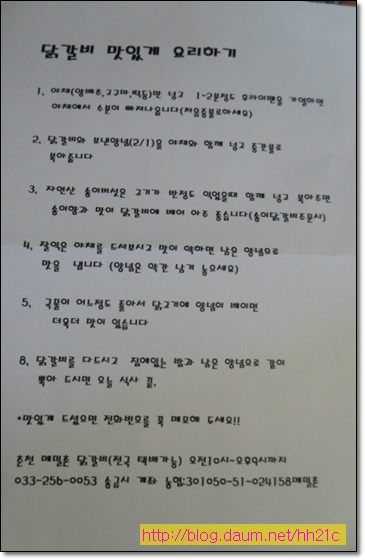 닭갈비 맛있게 요리하기
1, 야채(양배추,고구마,떡등)만 넣고 1~2분정도 후라이팬을 가열하면
야채에서 수분이 빠져나옵니다(처음중불로하세요)
2, 닭갈비와 보낸양념(2/1)을 야채와 함께 넣고 중간불로
볶아줍니다
3, 자연산 송이버섯은 고기가 반정도 익었을때 함께 넣고 볶아주면
송이향과 맛이 닭갈비에 베어 아주 좋습니다(송이닭갈비주문시)
4, 잘익은 야채를 드셔보시고 맛이 약하면 남은 양념으로
맛을 냅니다 (양념은 약간 남겨 놓으세요)
5, 국물이 어느정도 졸아서 닭고기에 양념이 베이면
더욱더 맛이 있습니다
8, 닭갈비를 다드시고 집에있는 밥과 남은 양념으로 같이
볶아 드시면 오늘 식사 끝,
*맛있게 드셨으면 전화번호를 꼭 메모해 두세요!!
춘천 메밀촌 닭갈비(전국 택배가능) 오전10시~오후9시까지
033-256-0053 송금시 계좌 농협:301050-51-024158메밀촌
http://blog.daum.net/hh21c